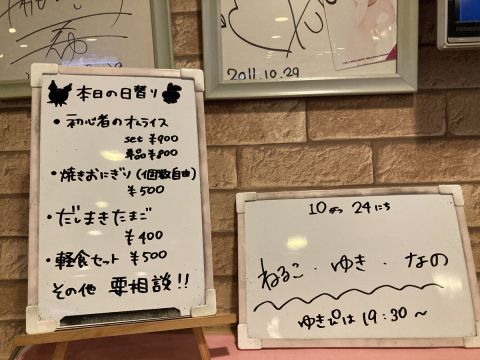 2011.10.29
本日の日替り
・初心者のオムライス
set ¥900
単品 ¥800
・焼きおにぎり(個数自由)
¥500
・だしまきたまご
¥400
・軽食セット ¥500
その他 要相談!!
10がつ 24にち
ねるこ・ゆき・なの
ゆきぴは 19:30〜